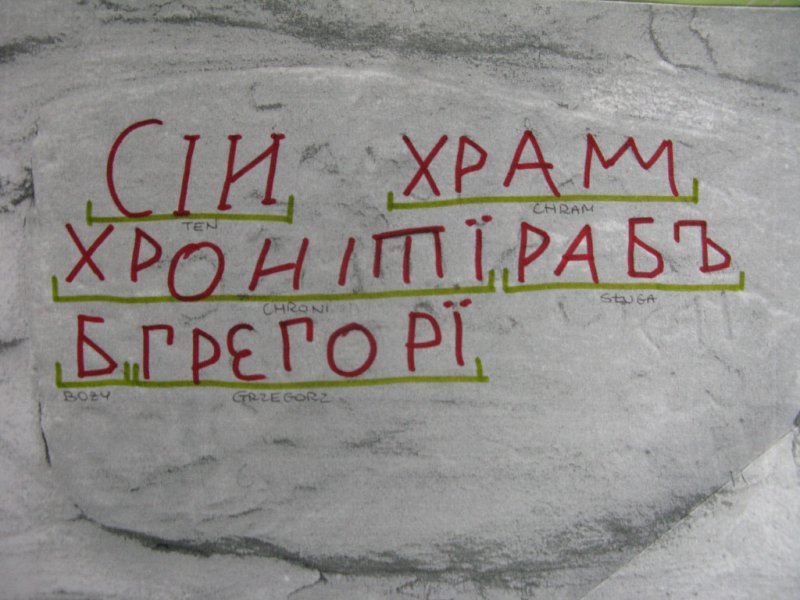 СІИ ХРАМ
TEN CHRAM
ХРОНІТЇ РАБЪ
CHRONI SŁUGA
Б ГРЕГОРЇ
BOŻY GRZEGORZ